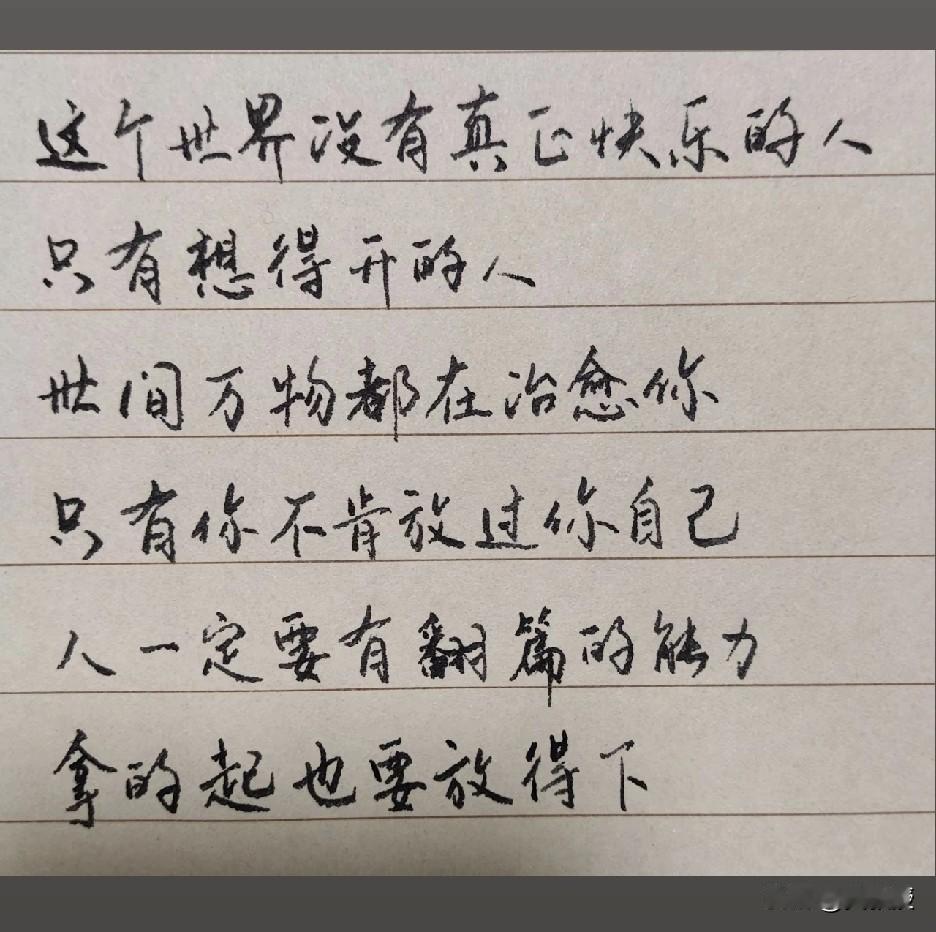 这个世界没有真正快乐的人
只有想得开的人
世间万物都在治愈你
只有你不肯放过你自己
人一定要有翻篇的能力
拿的起也要放得下